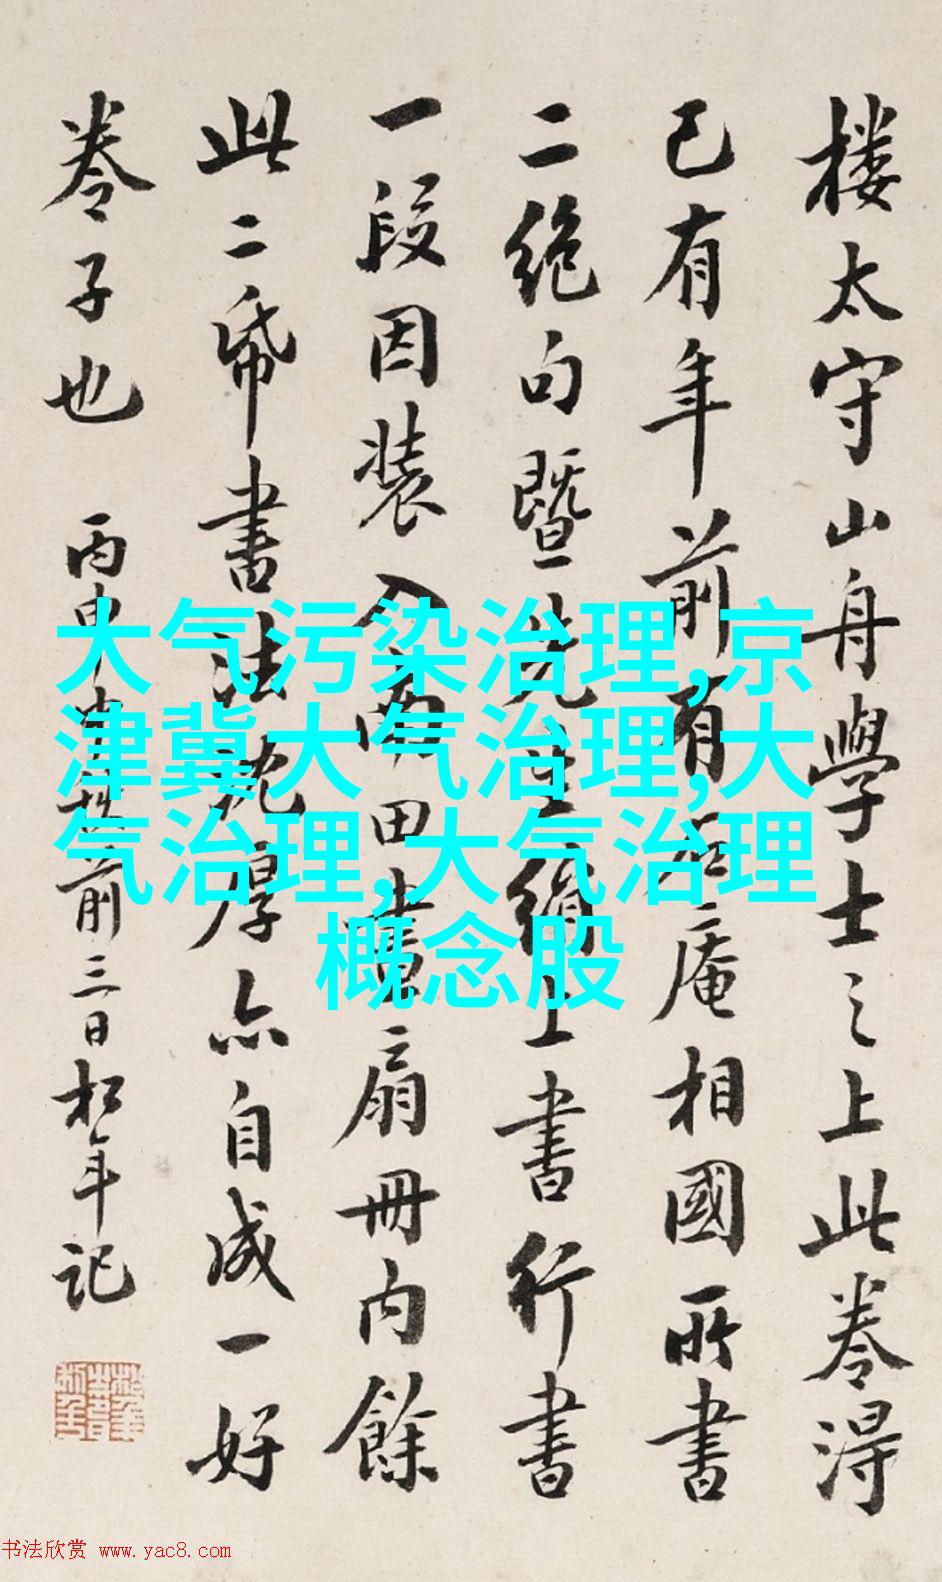 楼太守山舟學士之上此卷淂
已有年前有石庵相國所書
二绝句暨先生绢上書行書
一段因装入兩田書扇冊内餘
此二帋書法沈厚亦自成一好
卷子也
丙申中秋前三日松年記
大气污染治理,京
津冀大气治理,大
气治理,大气治理
概念股
书法欣赏 www.yac8.com